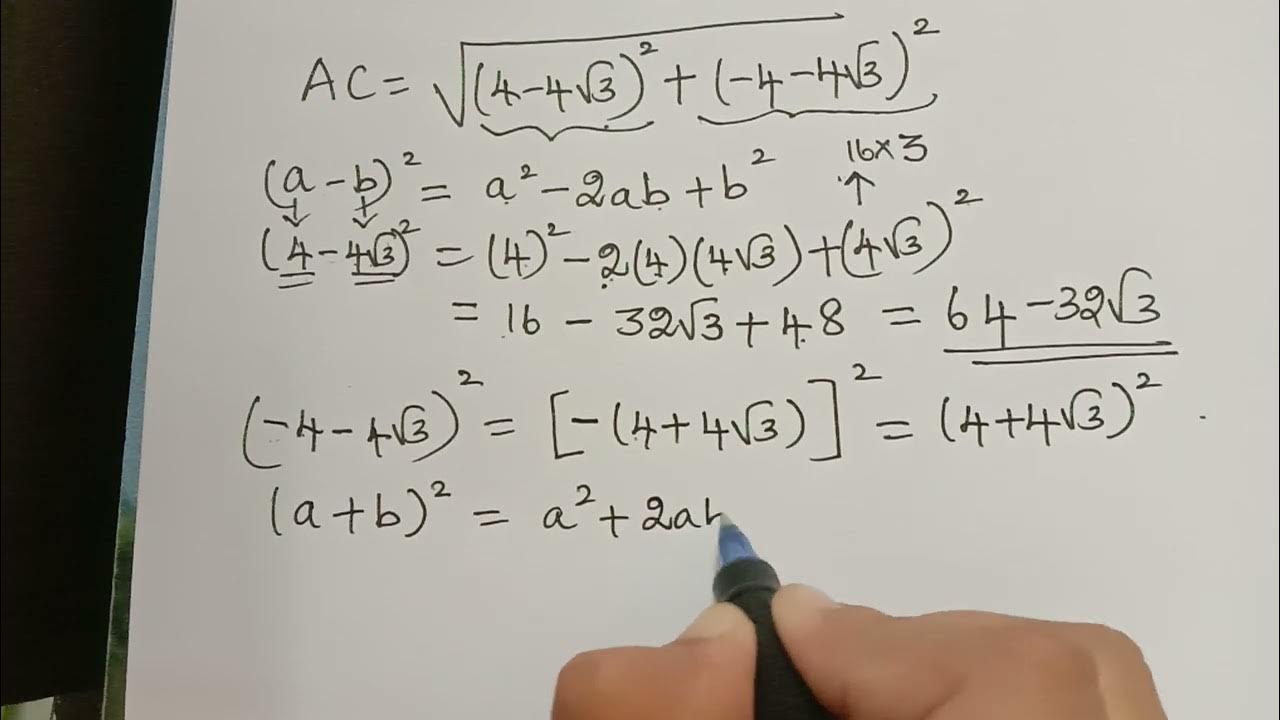 AC = √(4-4√3)² + (-4-4√3)²
(a-b)² = a² - 2ab + b² 16×3
(4-4√3)² = (4)² - 2(4)(4√3) + (4√3)²
= 16 - 32√3 + 48 = 64 - 32√3
(-4-4√3)² = [-(4+4√3)]² = (4+4√3)²
(a+b)² = a² + 2ab